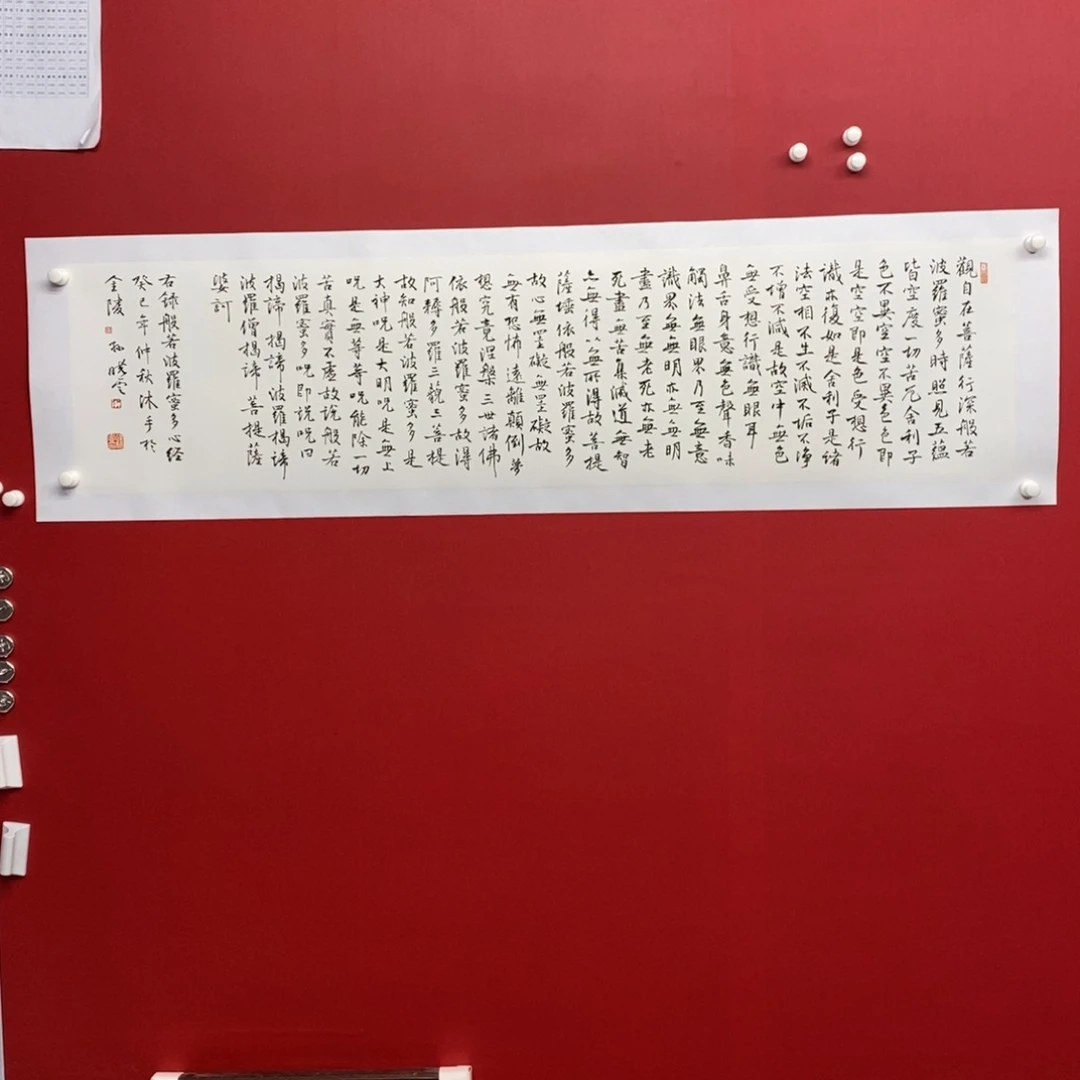 觀自在菩薩行深般若
波羅蜜多時照見五蘊
皆空度一切苦厄舍利子
色不異空空不異色色即
是空空即是色受想行
識亦復如是舍利子是諸
法空相不生不滅不垢不淨
不增不減是故空中無色
無受想行識無眼耳
鼻舌身意無色聲香味
觸法無眼界乃至無意
識界無無明亦無無明
盡乃至無老死亦無老
死盡無苦集滅道無智
亦無得以無所得故菩提
薩埵依般若波羅蜜多
故心無罣礙無罣礙故
無有恐怖遠離顛倒夢
想究竟涅槃三世諸佛
依般若波羅蜜多故得
阿耨多羅三藐三菩提
故知般若波羅蜜多是
大神咒是大明咒是無上
咒是無等等咒能除一切
苦真實不虛故說般若
波羅蜜多咒即說咒曰
揭諦揭諦波羅揭諦
波羅僧揭諦菩提薩
婆訶
右錄般若波羅蜜多心經
癸巳年仲秋沐手於
金陵